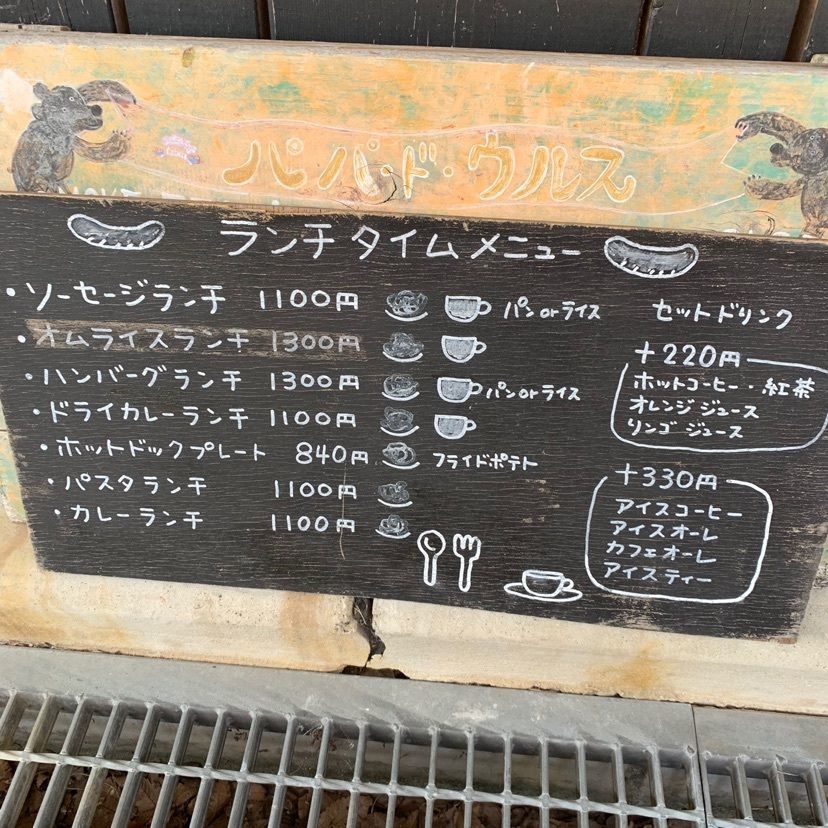 パパ・ド・ウルス
ランチタイムメニュー
・ソーセージランチ 1100円 パンorライス
・オムライスランチ 1300円
・ハンバーグランチ 1300円 パンorライス
・ドライカレーランチ 1100円
・ホットドックプレート 840円 フライドポテト
・パスタランチ 1100円
・カレーランチ 1100円
セットドリンク
+220円
ホットコーヒー・紅茶
オレンジジュース
リンゴジュース
+330円
アイスコーヒー
アイスオーレ
カフェオーレ
アイスティー